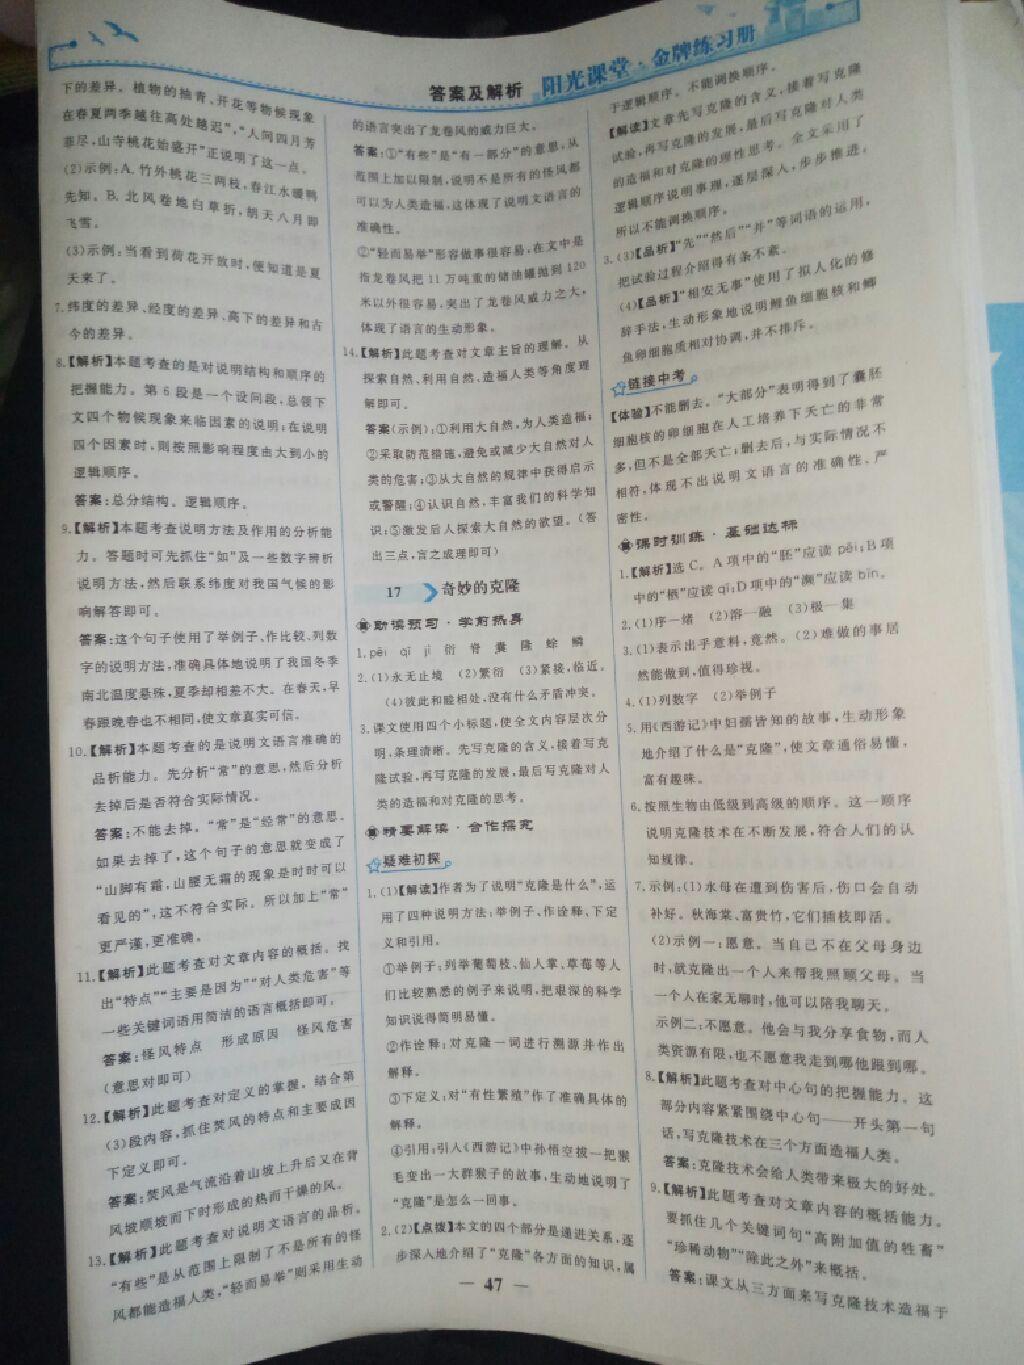 答案及解析
阳光课堂·金牌练习册
下的差异。植物的抽青、开花等物候现象
在春夏两季越往高处越迟”，“人间四月芳
菲尽，山寺桃花始盛开”正说明了这一点。
(2)示例：A.竹外桃花三两枝，春江水暖鸭
先知。B.北风卷地白草折，胡天八月即
飞雪。
(3)示例：当看到荷花开放时，便知道是夏
天来了。
7.纬度的差异、经度的差异、高下的差异和古
今的差异。
8.【解析】本题考查的是对说明结构和顺序的
把握能力。第6段是一个设问段，总领下
文四个物候现象来临因素的说明；在说明
四个因素时，则按照影响程度由大到小的
逻辑顺序。
答案：总分结构。逻辑顺序。
9.【解析】本题考查说明方法及作用的分析能
力。答题时可先抓住“如”及一些数字辨析
说明方法，然后联系纬度对我国气候的影
响解答即可。
答案：这个句子使用了举例子、作比较、列数
字的说明方法，准确具体地说明了我国冬季
南北温度悬殊，夏季却相差不大。在春天，早
春跟晚春也不相同，使文章真实可信。
10.【解析】本题考查的是说明文语言准确的
品析能力。先分析“常”的意思，然后分析
去掉后是否符合实际情况。
答案：不能去掉。“常”是“经常”的意思。
如果去掉了，这个句子的意思就变成了
“山脚有霜，山腰无霜的现象是时时可以
看见的”，这不符合实际。所以加上“常”
更严谨，更准确。
11.【解析】此题考查对文章内容的概括。找
出“特点”“主要是因为”“对人类危害”等
一些关键词语用简洁的语言概括即可。
答案：怪风特点 形成原因 怪风危害
(意思对即可)
12.【解析】此题考查对定义的掌握。结合第
(3)段内容，抓住焚风的特点和主要成因
下定义即可。
答案：焚风是气流沿着山坡上升后又在背
风坡顺坡而下时形成的热而干燥的风。
13.【解析】此题考查对说明文语言的品析。
“有些”是从范围上限制了不是所有的怪
风都能造福人类，“轻而易举”则采用生动
的语言突出了龙卷风的威力巨大。
答案：①“有些”是“有一部分”的意思，从
范围上加以限制，说明不是所有的怪风都
可以为人类造福，这体现了说明文语言的
准确性。
②“轻而易举”形容做事很容易，在文中是
指龙卷风把11万吨重的储油罐抛到120
米以外很容易，突出了龙卷风威力之大，
体现了语言的生动形象。
14.【解析】此题考查对文章主旨的理解。从
探索自然、利用自然、造福人类等角度理
解即可。
答案(示例)：①利用大自然，为人类造福；
②采取防范措施，避免或减少大自然对人
类的危害；③从大自然的规律中获得启示
或警醒；④认识自然，丰富我们的科学知
识；⑤激发后人探索大自然的欲望。(答
出三点，言之成理即可)
17 奇妙的克隆
助读预习·学前热身
1.pēi qī jì 衍 脊 囊 隆 蜍 鳞
2.(1)永无止境 (2)繁衍 (3)紧接，临近。
(4)彼此和睦相处，没有什么矛盾冲突。
3.课文使用四个小标题，使全文内容层次分
明，条理清晰。先写克隆的含义，接着写克
隆试验，再写克隆的发展，最后写克隆对人
类的造福和对克隆的思考。
精要解读·合作探究
疑难初探
1.(1)【解读】作者为了说明“克隆是什么”，运
用了四种说明方法：举例子、作诠释、下定
义和引用。
①举例子：列举葡萄枝、仙人掌、草莓等人
们比较熟悉的例子来说明，把艰深的科学
知识说得简明易懂。
②作诠释：对克隆一词进行溯源并作出
解释。
③下定义：对“有性繁殖”作了准确具体的
解释。
④引用：引入《西游记》中孙悟空拔一把猴
毛变出一大群猴子的故事，生动地说明了
“克隆”是怎么一回事。
2.(2)【点拨】本文的四个部分是递进关系，逐
步深入地介绍了“克隆”各方面的知识，属
于逻辑顺序。不能调换顺序。
【解读】文章先写克隆的含义，接着写克隆
试验，再写克隆的发展，最后写克隆对人类
的造福和对克隆的理性思考。全文采用了
逻辑顺序说明事理，逐层深入，步步推进，
所以不能调换顺序。
3.(3)【品析】“先”“然后”“并”等词语的运用，
把试验过程介绍得有条不紊。
(4)【品析】“相安无事”使用了拟人化的修
辞手法，生动形象地说明鲤鱼细胞核和鲫
鱼卵细胞质相对协调，并不排斥。
链接中考
【体验】不能删去。“大部分”表明得到了囊胚
细胞核的卵细胞在人工培养下夭亡的非常
多，但不是全部夭亡；删去后，与实际情况不
相符，体现不出说明文语言的准确性、严
密性。
课时训练·基础达标
1.【解析】选C。A项中的“胚”应读pēi；B项
中的“栖”应读qī；D项中的“濒”应读bīn。
2.(1)序—绪 (2)溶—融 (3)极—集
3.(1)表示出乎意料，竟然。(2)难做的事居
然能做到，值得珍视。
4.(1)列数字 (2)举例子
5.用《西游记》中妇孺皆知的故事，生动形象
地介绍了什么是“克隆”，使文章通俗易懂，
富有趣味。
6.按照生物由低级到高级的顺序。这一顺序
说明克隆技术在不断发展，符合人们的认
知规律。
7.示例：(1)水母在遭到伤害后，伤口会自动
补好。秋海棠、富贵竹，它们插枝即活。
(2)示例一：愿意。当自己不在父母身边
时，就克隆出一个人来帮我照顾父母。当
一个人在家无聊时，他可以陪我聊天。
示例二：不愿意。他会与我分享食物，而人
类资源有限，也不愿意我走到哪他跟到哪。
8.【解析】此题考查对中心句的把握能力。这
部分内容紧紧围绕中心句——开头第一句
话，写克隆技术在三个方面造福人类。
答案：克隆技术会给人类带来极大的好处。
9.【解析】此题考查对文章内容的概括能力。
要抓住几个关键词句“高附加值的牲畜”
“珍稀动物”“除此之外”来概括。
答案：课文从三方面来写克隆技术造福于
— 47 —